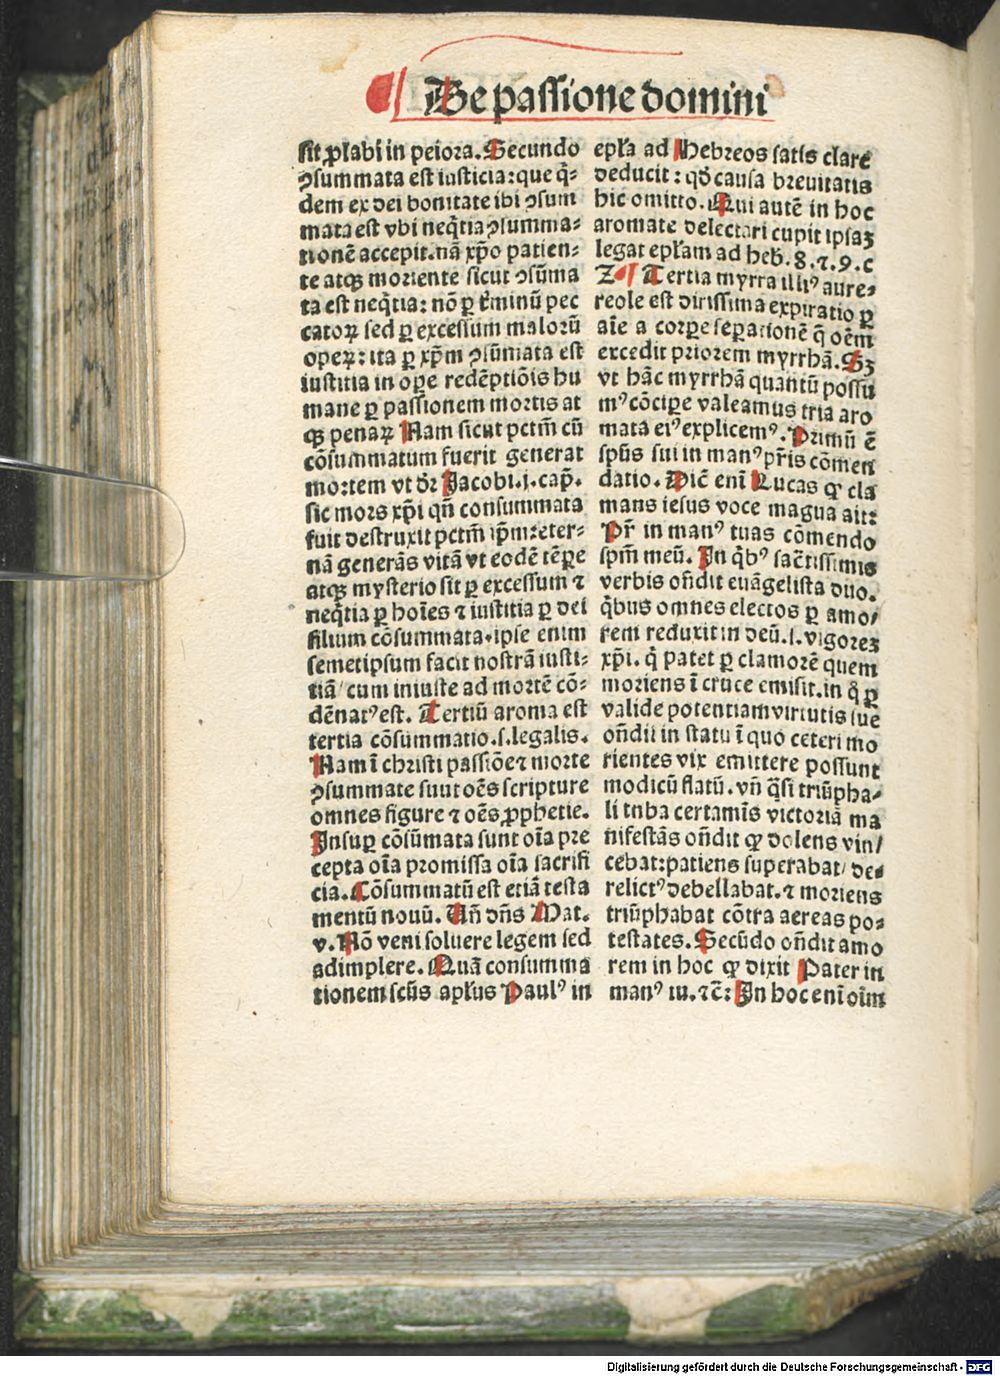 De passione domini
sit ꝓlabi in peiora. Secundo
ꝯsummata est iusticia: que q̄-
dem ex dei bonitate ibi ꝯsum
mata est vbi neq̄tia ꝯsumma-
tionē accepit. nā xp̄o patien-
te atqꝫ moriente sicut ꝯsūma
ta est neq̄tia: nō ꝑ t̄minū pec
catoꝝ sed ꝑ excessum malorū
opeꝝ: ita ꝑ xp̄m ꝯsūmata est
iustitia in oꝑe redēptiōis hu
mane ꝑ passionem mortis at
qꝫ penaꝝ Nam sicut pctm̄ cū
cōsummatum fuerit generat
mortem vt dr̄ Jacobi.j. cap̄.
sic mors xp̄i qn̄ consummata
fuit destruxit pctm̄ ip̄m: eter-
nā generās vitā vt eodē tēꝑe
atqꝫ mysterio sit ꝑ excessum ⁊
neq̄tia ꝑ hoīes ⁊ iustitia ꝑ dei
filium cōsummata. ipse enim
semetipsum facit nostrā iusti-
tiā/ cum iniuste ad mortē cō-
dēnatꝰ est. Tertiū aroma est
tertia cōsummatio.s.legalis.
Nam ī christi passiōe ⁊ morte
ꝯsummate suut oēs scripture
omnes figure ⁊ oēs ꝓphetie.
Insuꝑ cōsūmata sunt oīa pre
cepta oīa promissa oīa sacrifi
cia. Cōsummatū est etiā testa
mentū nouū. Uñ dn̄s Mat.
v. Nō veni soluere legem sed
adimplere. Quā consumma
tionem scūs apl̄us Paulꝰ in
epl̄a ad Hebreos satis clare
deducit: qd̄ causa breuitatis
hic omitto. Qui autē in hoc
aromate delectari cupit ipsaꝫ
legat epl̄am ad heb. 8.⁊.9.c
Z Tertia myrra illiꝰ aure-
reole est dirissima expiratio ꝑ
aīe a corꝑe seꝑationē q̄ oēm
excedit priorem myrrhā. Sꝫ
vt hāc myrrhā quantū possu
mꝰ cōciꝑe valeamus tria aro
mata eiꝰ explicemꝰ. Primū ē
spūs sui in manꝰ pr̄is cōmen
datio. Dic̄ enī Lucas qꝙ cla
mans iesus voce magua ait:
Pr̄ in manꝰ tuas cōmendo
spm̄ meū. In q̄bꝰ sac̄tissimis
verbis on̄dit euāgelista duo.
q̄bus omnes electos ꝑ amo/
rem reduxit in deū.s.vigoreꝫ
xp̄i. q̄ patet ꝑ clamorē quem
moriens ī cruce emisit. in q̄ ꝑ
valide potentiam virtutis sue
on̄dit in statu ī quo ceteri mo
rientes vix emittere possunt
modicū flatū. vn̄ q̄si triūpha-
li tnba certamīs victoriā ma
nifestās on̄dit ꝙ dolens vin/
cebat: patiens superabat/ de-
relictꝰ debellabat. ⁊ moriens
triūphabat cōtra aereas po-
testates. Secūdo on̄dit amo
rem in hoc ꝙ dixit Pater in
manꝰ tu. ⁊c̄: In hoc enī oīm
Digitalisierung gefördert durch die Deutsche Forschungsgemeinschaft - DFG